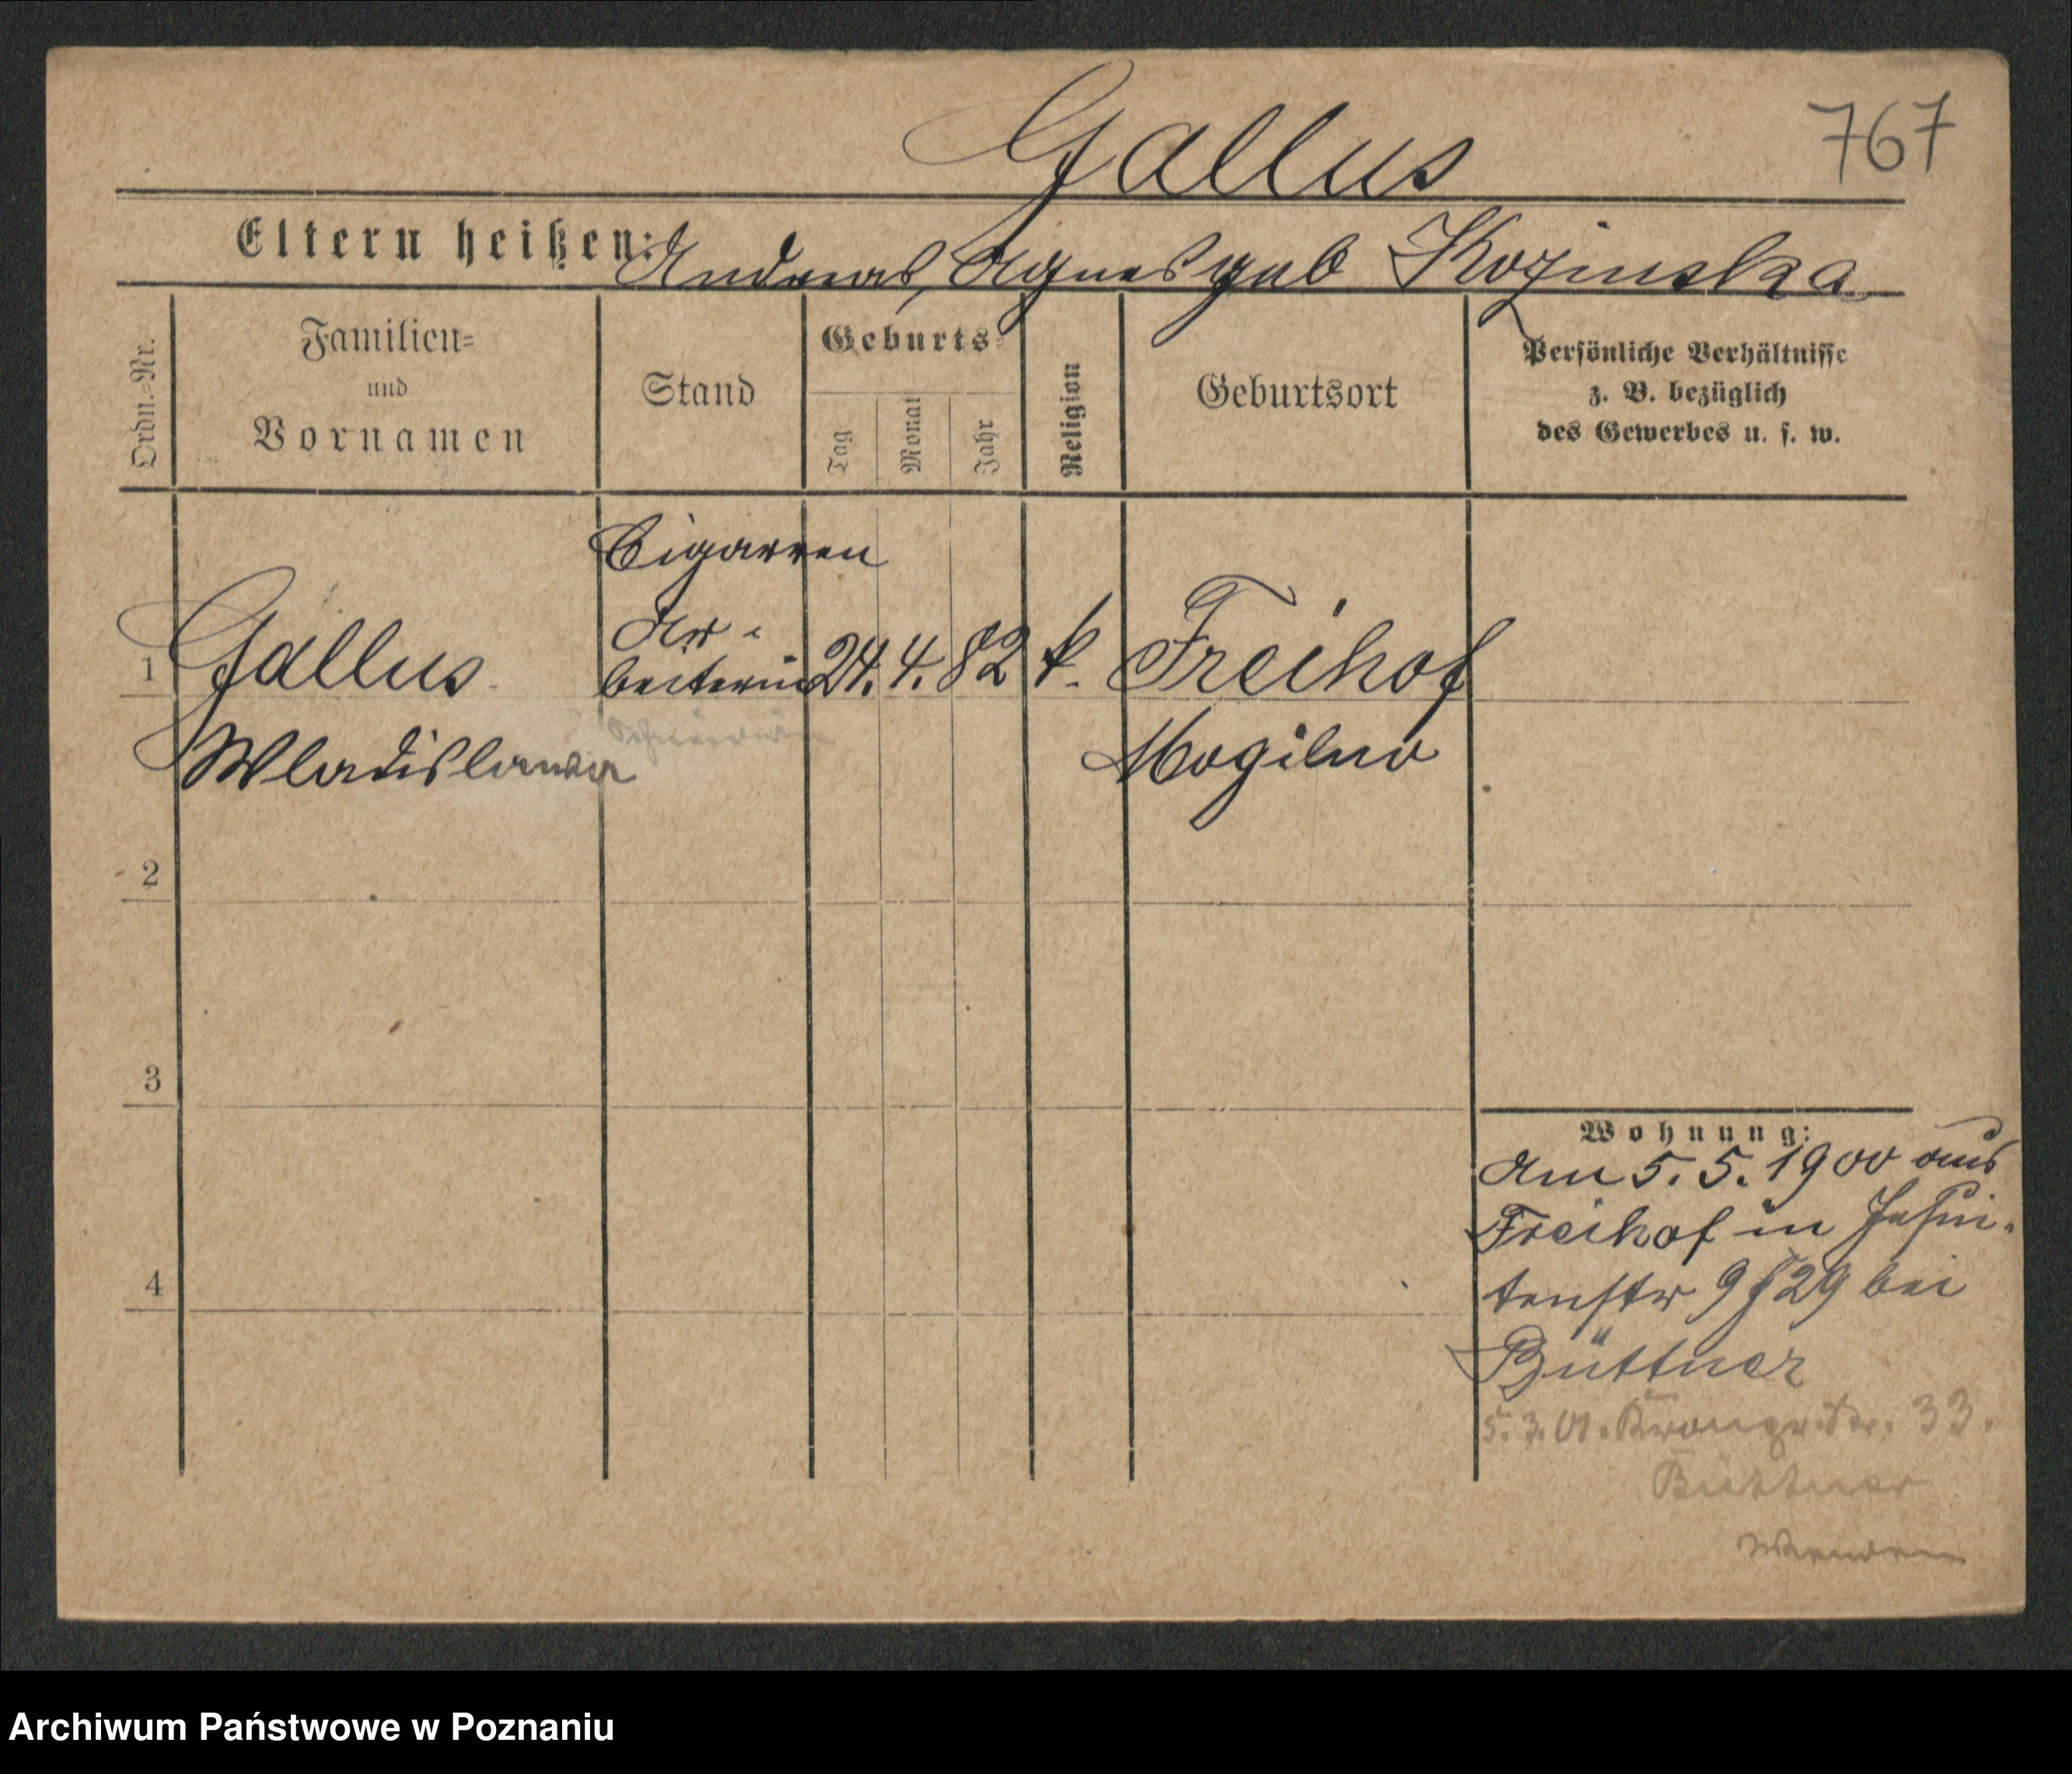 Gallus
767
Eltern heißen: Andreas, Agnes geb Kozinska
Ordn.=Nr.
Familien=
und
Vornamen
Stand
Geburts=
Tag
Monat
Jahr
Religion
Geburtsort
Persönliche Verhältnisse
z. B. bezüglich
des Gewerbes u. s. w.
Cigarren
Ar-
1 Gallus beiterin 24. 4. 82 k. Freihof
Wladislawa Mogilno
2
3
Wohnung:
Am 5. 5. 1900 aus
Freihof in Jesui-
4
tenstr 9 29 bei
Büttner
5. 3. 01. Kronprz. Str. 33.
Büttner
Archiwum Państwowe w Poznaniu